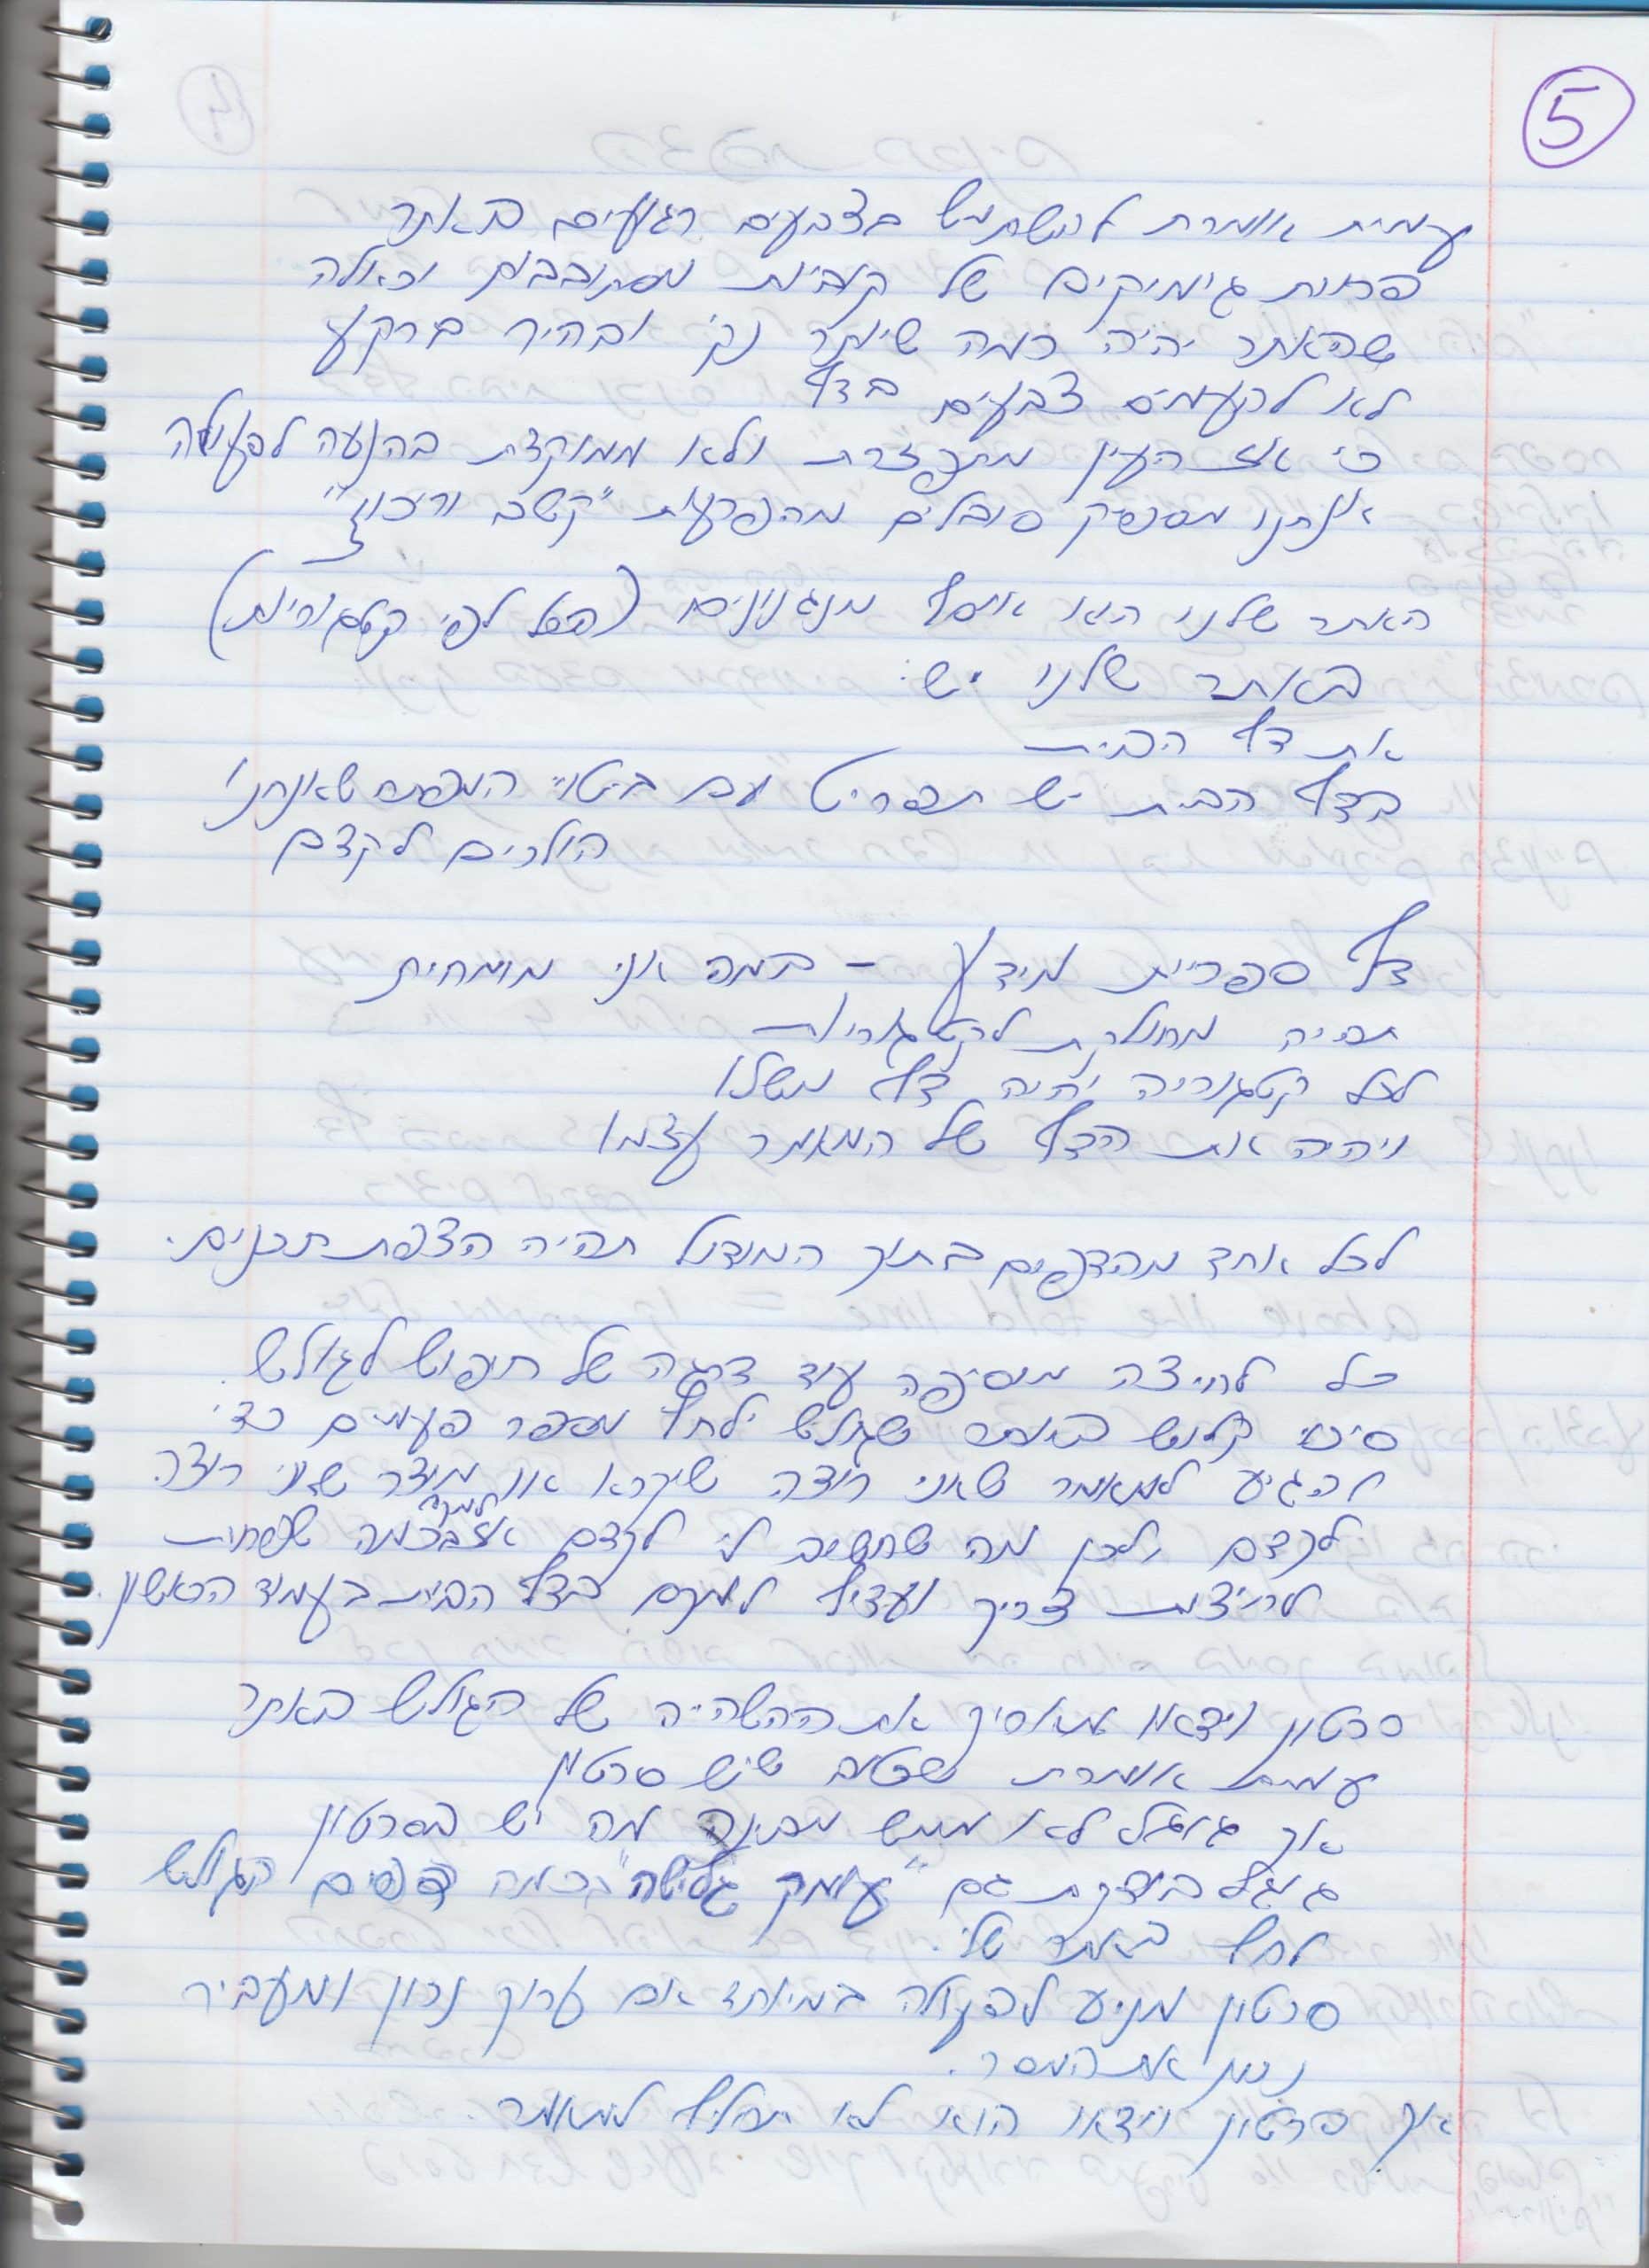 5
עמית אומרת להשתמש בצבעים רגועים באתר
פחות גימיקים של קוביות מסתובבות וכאלה
שהאתר יהיה כמה שיותר נקי ובהיר ברקע
לא להעמיס צבעים בדף
כי אז העין מתפזרת ולא ממוקדת בהנעה לפעולה
אנחנו מספיק סובלים מהפרעות "קשב וריכוז"
האתר שלנו הוא אוסף מנגנונים (הכל לפי קטגוריות)
באתר שלנו יש:
את דף הבית
בדף הבית יש תפריט עם ביטויי המפתח שאנחנו
הולכים לקדם
דף ספריית מידע – במה אני מומחית
תהיה מחולקת לקטגוריות
לכל קטגוריה יהיה דף משלו
ויהיה את הדף של המאמר עצמו
לכל אחד מהדפים בתוך המודול תהיה הצפת תכנים.
כל לחיצה מוסיפה עוד דרגה של חיפוש לגולש.
סיכוי קלוש באמת שגולש ילחץ מספר פעמים כדי
להגיע למאמר שאני רוצה שיקרא או מוצר שאני רוצה
לקדם ולכן מה שחשוב לי לקדם אז בכמה שפחות
לחיצות צריך ועדיף למקם בדף הבית בעמוד הראשון.
סרטון וידאו מאסיך את ההשהייה של הגולש באתר
עמית אומרת שטוב שיש סרטון
אך גוגל לא ממש מבינה מה יש בסרטון
גוגל בודקת גם "עומק גלישה" בכמה דפים הגולש
לחץ באתר שלי.
סרטון מניע לפעולה במיוחד אם ערוך נכון ומעביר
נכון את המסר.
אך סרטון וידאו הוא לא תחליף למאמר.